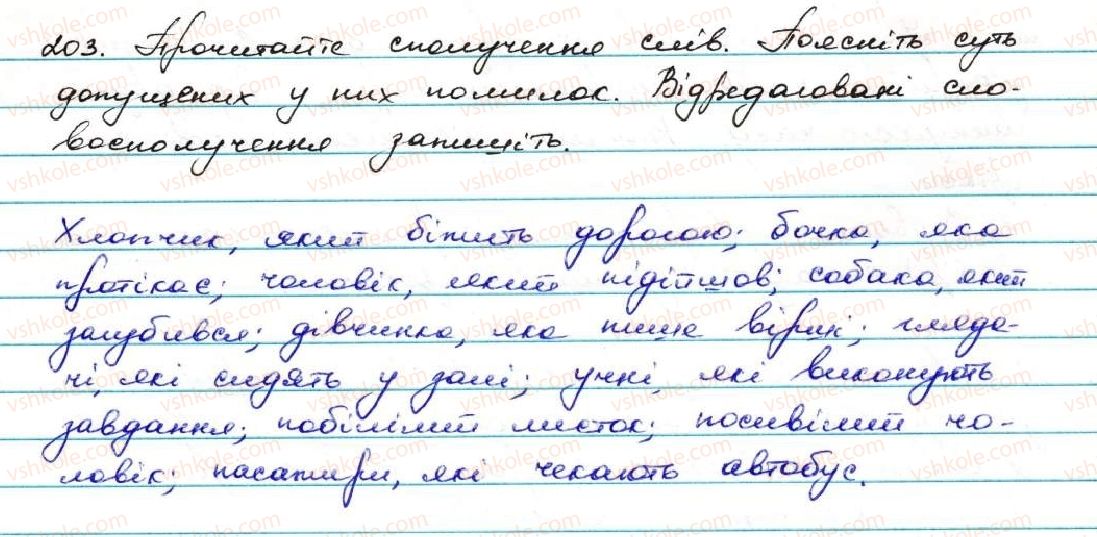 203. Прочитайте сполучення слів. Поясніть суть
допущених у них помилок. Відредаговані сло-
восполучення запишіть.
Хлопчик, який біжить дорогою; бочка, яка
протікає; чоловік, який підійшов; собака, який
загубився; дівчинка, яка пише вірші; гляда-
чі, які сидять у залі; учні, які виконують
завдання; побілілий листок; посивілий чо-
ловік; пасажири, які чекають автобус.